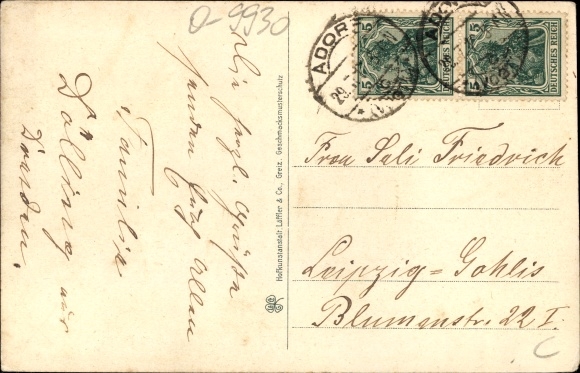 O-9930
Die herzl. Grüße
senden Euch Allen
Familie
Dölling aus
Hofkunstanstalt Löffler & Co., Greiz. Geschmacksmusterschutz
ADORF
29.
DEUTSCHES REICH
5
5
DEUTSCHES REICH
5
5
Frau Seli Friedrich
Leipzig=Gohlis
Blumenstr. 22 I.
C